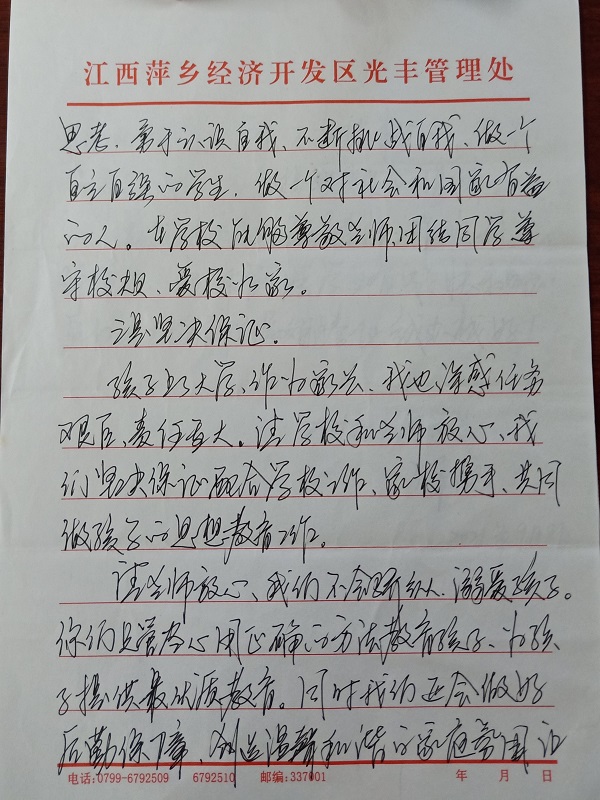 江西萍乡经济开发区光丰管理处
思考、勇于认识自我、不断挑战自我、做一个
自立自强的学生,做一个对社会和国家有益
的人。在学校能够尊敬老师,团结同学,尊
守校规、爱校如家。
二是坚决保证。
孩子上大学,作为家长、我也深感任务
艰巨、责任重大。请学校和老师放心、我
们坚决保证配合学校工作、家校携手、共同
做孩子的思想教育工作。
请老师放心、我们不会骄纵、溺爱孩子。
你们只管尽心用正确的方法教育孩子、为孩
子提供最优质教育。同时我们还会做好
后勤保障,创造温馨和谐的家庭氛围 让
电话:0799-6792509 6792510 邮编:337001 年 月 日